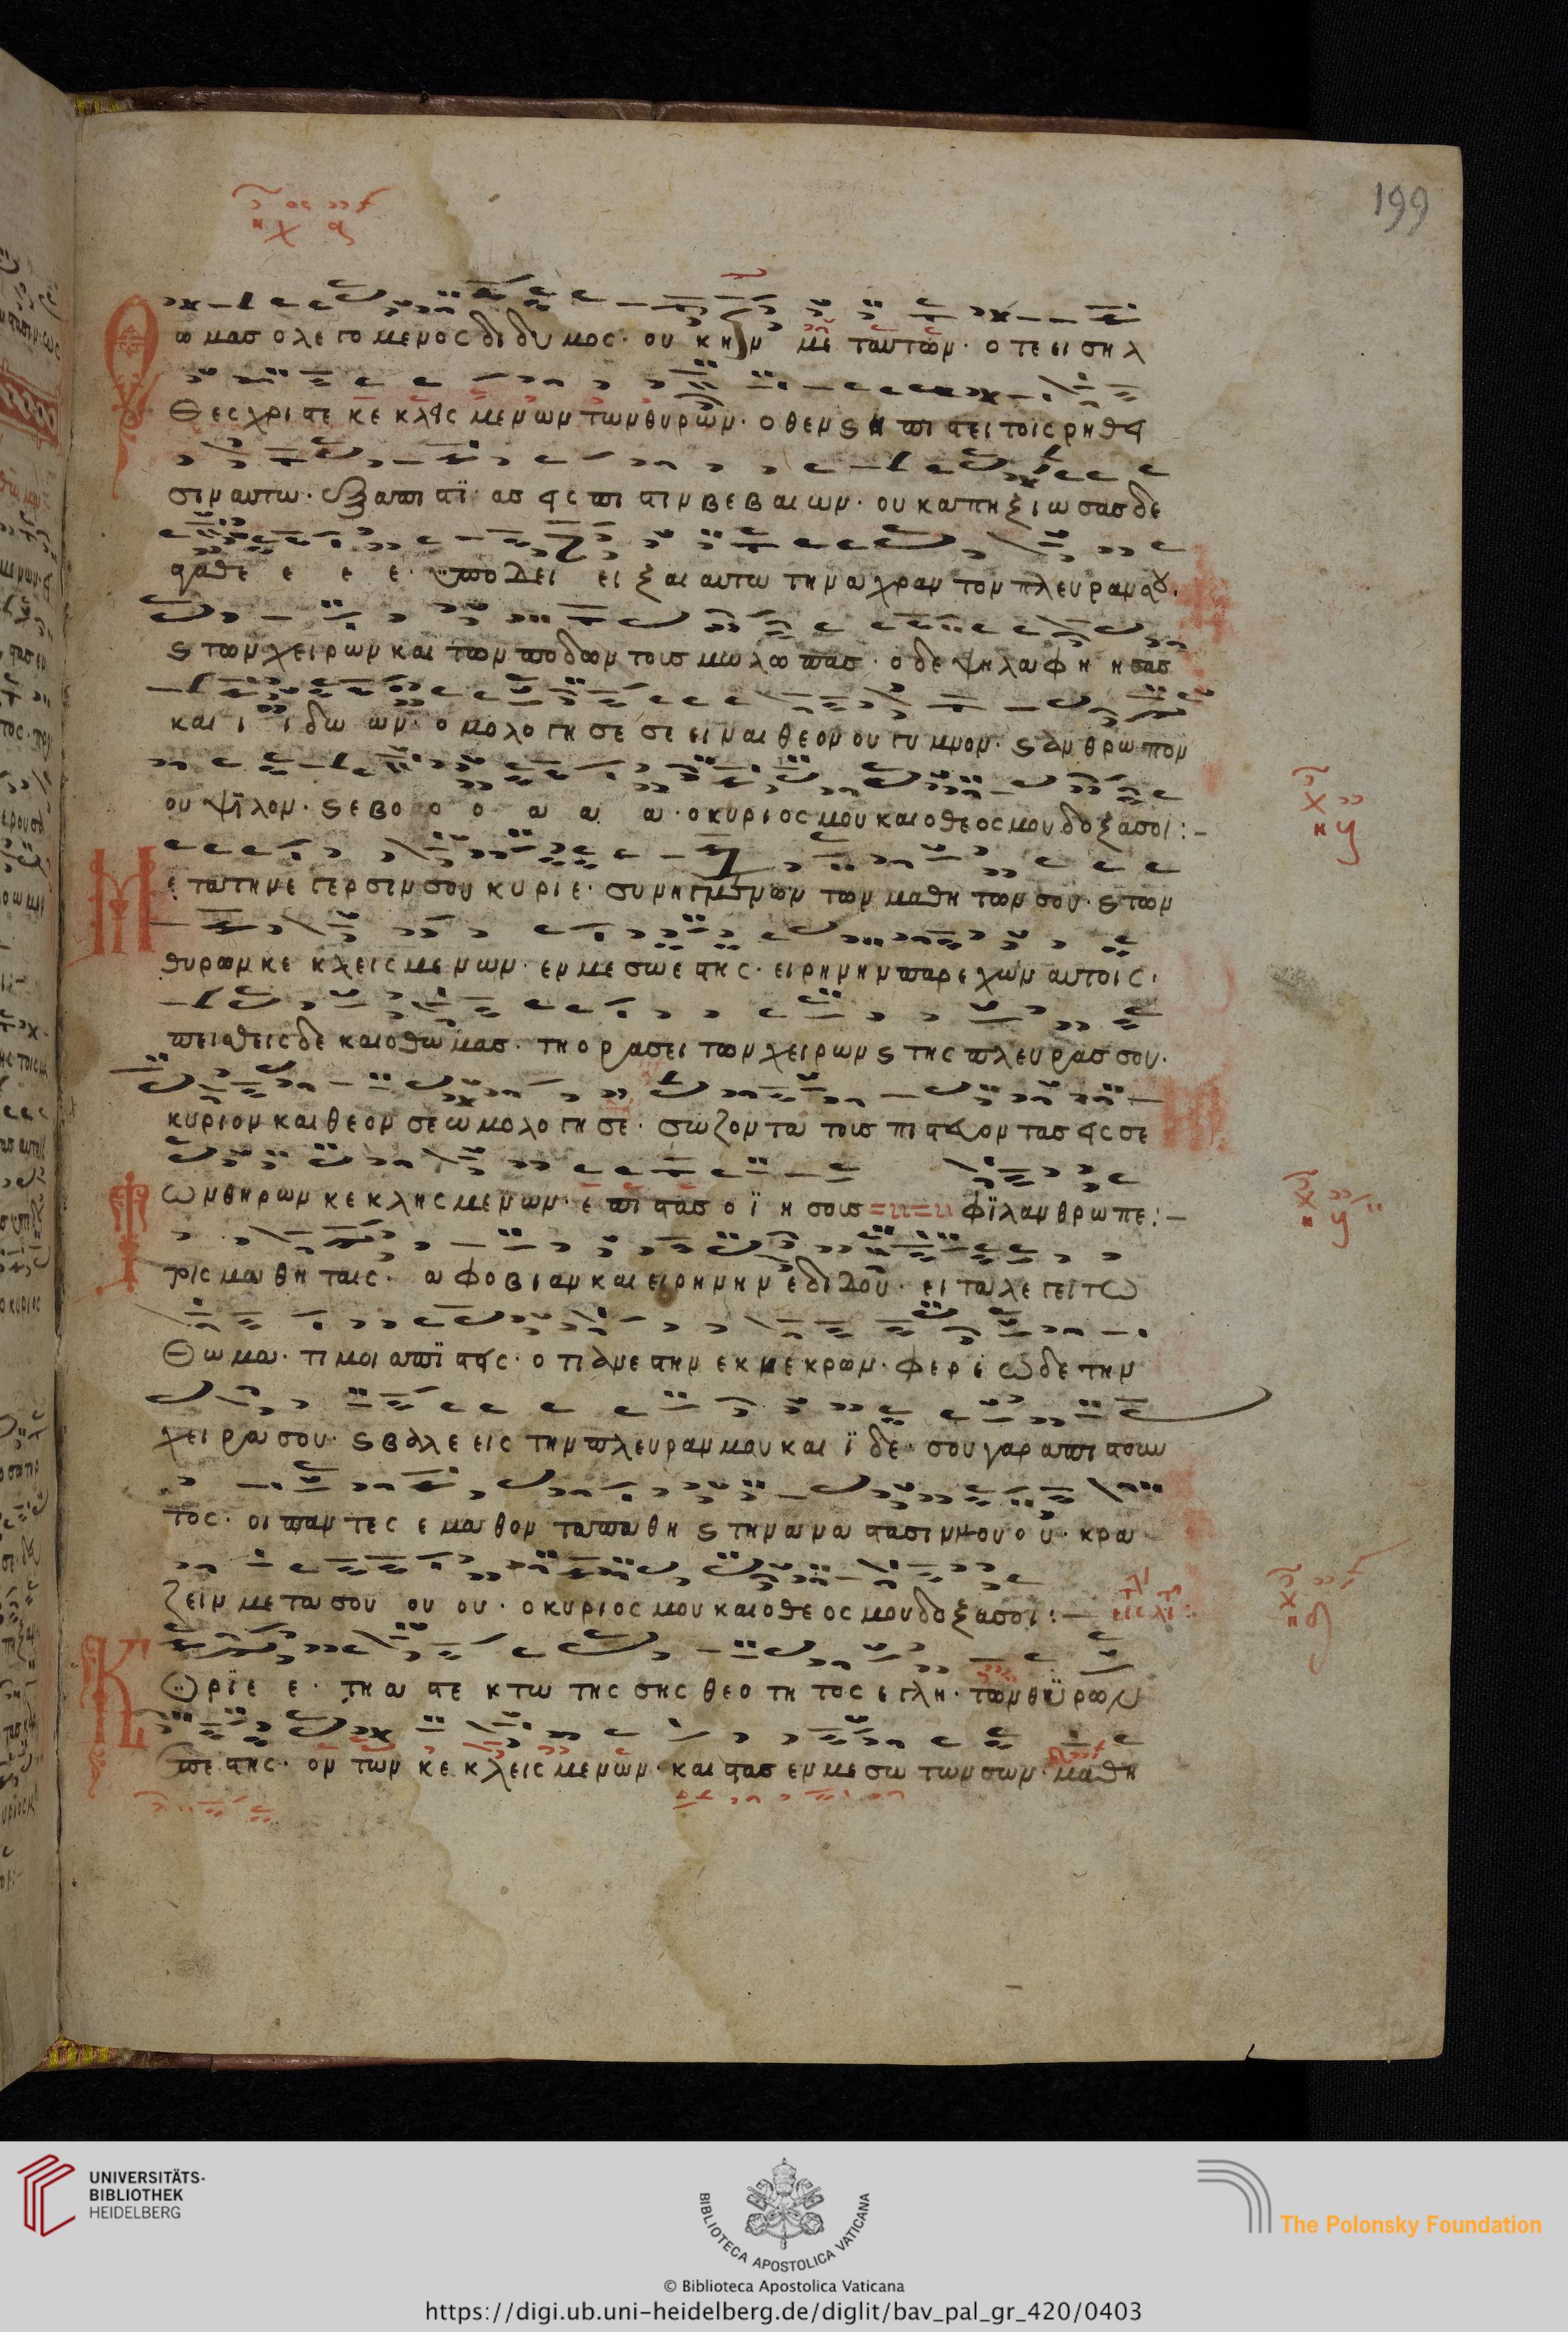 199
ω μας ο λε γο με νος δι δυ μος· ου κ ην με τ αυ των· ο τε ει ση λ
θες χρι στε κε κλεις με νων των θυ ρων· ο θεν ϛ η πι στει τοις ρη θει
σιν αυτω· εξ απι στι ας εις πι στιν βε βαι ων· ου κ απηξι ω σας δε
αγαθε ε ε ε· υπο δει ει ξαι αυτω την αχραν τον πλευραν σου·
ϛ των χει ρων και των ποδων τους μω λω πας· ο δε ψηλα φη η σας
και ι ι δω ων· ο μολο γη σε σε ει ναι θε ον ου γυ μνον· ϛ αν θρω πον
ου ψιλον· ϛ ε βο ο ο α α α· ο κυριος μου και ο θεος μου δοξα σοι:–
Μ ε τα την ε γερ σιν σου κυ ρι ε· συ νηγμε νων των μαθη των σου· ϛ των
θυρων κε κλεις με νων· εν με σω ε στης· ειρηνην παρε χων αυτοις·
πεισθεις δε και ο θω μας· τη ο ρασει των χειρων ϛ της πλευρας σου·
κυριον και θε ον σε ω μολο γη σε· σω ζον τα τους πι στευον τας εις σε
φιλανθρωπε:–
Τ ων θηρων κε κλης με νων· ε πι στας ο ι η σους
τρις μα θη ταις· α φο βι αν και ειρηνην ε διδου· ει τα λε γει τω
Θω μα· τι μοι απι στεις· ο τι ανε στην εκ νε κρων· φερε ωδε την
χει ρα σου· ϛ βαλε εις την πλευραν μου και ι δε· σου γαρ απι στουν
τος· οι παν τες ε μα θον τα πα θη ϛ την ανα στασιν μου ου· κρα
ζειν με τα σου ου ου· ο κυριος μου και ο θε ος μου δοξα σοι:–
Κ υρι ε ε· τη α στε κτω της σης θεο τη τος αιγλη· των θυρων
επε στης· ον των κε κλεις με νων· και στας εν με σω των σων· μαθη
UNIVERSITÄTS-
BIBLIOTHEK
HEIDELBERG
BIBLIOTECA APOSTOLICA VATICANA
The Polonsky Foundation
© Biblioteca Apostolica Vaticana
https://digi.ub.uni-heidelberg.de/diglit/bav_pal_gr_420/0403